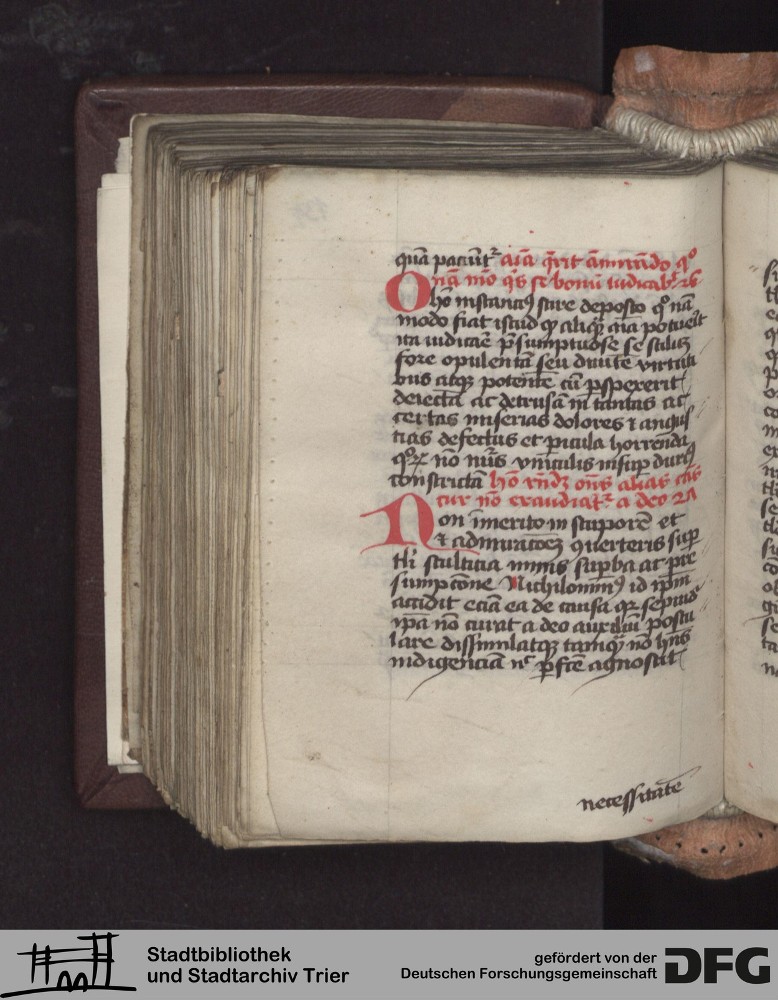 quā paciūt² aīa q̄rit āmirādo q°
nā mō q̄s se bonū iudicab²
O hō instanciꝰ scire deposco q° nā
modo fiat istud ꝙ aliq̄ aīa potuerit
ita iudicare p̄sumptuose se
fore opulentā seu diuitē virtuti
bus atqꝫ potentē cū ꝓspexerit
deiectā ac detrusā in tantas ac
certas miserias dolores ⁊ angus
tias defectus et picula horrenda
nō nūs vinculis insuꝑ durꝭ
constrictā hō rn̄dꝫ alias
cur nō exaudiat² a deo
Non inmerito in stuporē et
⁊ admiracōeꝫ querteris suꝑ
stulticia nimis suꝑba ac pre
sumpcōne Nichilominꝰ id ip̄m
accidit eciā ea de causa qꝛ sepius
ip̄a nō curat a deo auxiliū postu
lare dissimilatqꝫ tamqꝫ nō hn̄s
indigenciā nᶜ ꝑfcē agnoscit
necessitatē
Stadtbibliothek
und Stadtarchiv Trier
gefördert von der
Deutschen Forschungsgemeinschaft
DFG